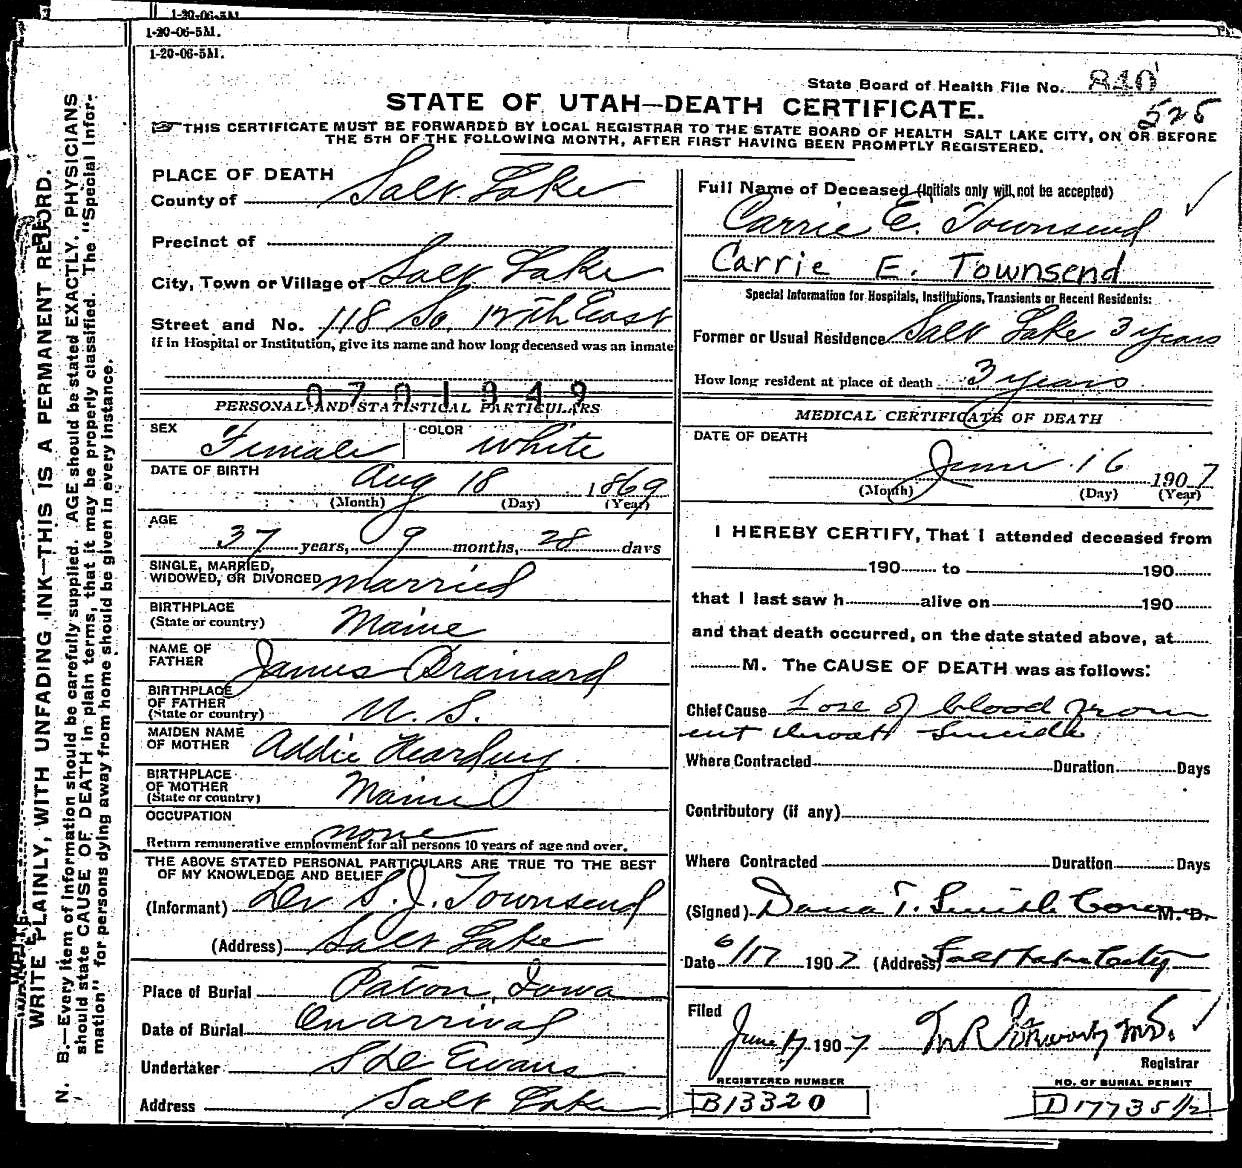 1-20-06-5M.
1-20-06-5M.
1-20-06-5M.
State Board of Health File No. 840
525
STATE OF UTAH—DEATH CERTIFICATE.
☞THIS CERTIFICATE MUST BE FORWARDED BY LOCAL REGISTRAR TO THE STATE BOARD OF HEALTH SALT LAKE CITY, ON OR BEFORE
THE 5TH OF THE FOLLOWING MONTH, AFTER FIRST HAVING BEEN PROMPTLY REGISTERED.
WRITE PLAINLY, WITH UNFADING INK—THIS IS A PERMANENT RECORD.
N. B.—Every item of information should be carefully supplied. AGE should be stated EXACTLY. PHYSICIANS
should state CAUSE OF DEATH in plain terms, that it may be properly classified. The "Special Infor-
mation" for persons dying away from home should be given in every instance.
PLACE OF DEATH
County of Salt Lake
Precinct of
City, Town or Village of Salt Lake
Street and No. 118 So. 12th East
If in Hospital or Institution, give its name and how long deceased was an inmate
0701949
PERSONAL AND STATISTICAL PARTICULARS
SEX Female COLOR White
DATE OF BIRTH Aug 18 1869
(Month) (Day) (Year)
AGE
37 years, 9 months, 28 days
SINGLE, MARRIED,
WIDOWED, OR DIVORCED married
BIRTHPLACE
(State or country) Maine
NAME OF
FATHER James Brainard
BIRTHPLACE
OF FATHER
(State or country) U. S.
MAIDEN NAME
OF MOTHER Addie Harding
BIRTHPLACE
OF MOTHER
(State or country) Maine
OCCUPATION
none
Return remunerative employment for all persons 10 years of age and over.
THE ABOVE STATED PERSONAL PARTICULARS ARE TRUE TO THE BEST
OF MY KNOWLEDGE AND BELIEF
(Informant) Dr S. J. Townsend
(Address) Salt Lake
Place of Burial Paton, Iowa
Date of Burial On arrival
Undertaker S D Evans
Address Salt Lake
Full Name of Deceased (Initials only will not be accepted)
Carrie E. Townsend
Carrie E. Townsend
Special Information for Hospitals, Institutions, Transients or Recent Residents:
Former or Usual Residence Salt Lake 3 years
How long resident at place of death 3 years
MEDICAL CERTIFICATE OF DEATH
DATE OF DEATH
June 16 1907
(Month) (Day) (Year)
I HEREBY CERTIFY, That I attended deceased from
190 to 190
that I last saw h alive on 190
and that death occurred, on the date stated above, at
M. The CAUSE OF DEATH was as follows:
Chief Cause Loss of blood from
cut throat Suicide
Where Contracted Duration Days
Contributory (if any)
Where Contracted Duration Days
(Signed) Dana T. Smith M. D.
Date 6/17 1907 (Address) Salt Lake City
Filed
June 17 1907 M.D.
Registrar
REGISTERED NUMBER
B13320
NO. OF BURIAL PERMIT
D17735 1/2